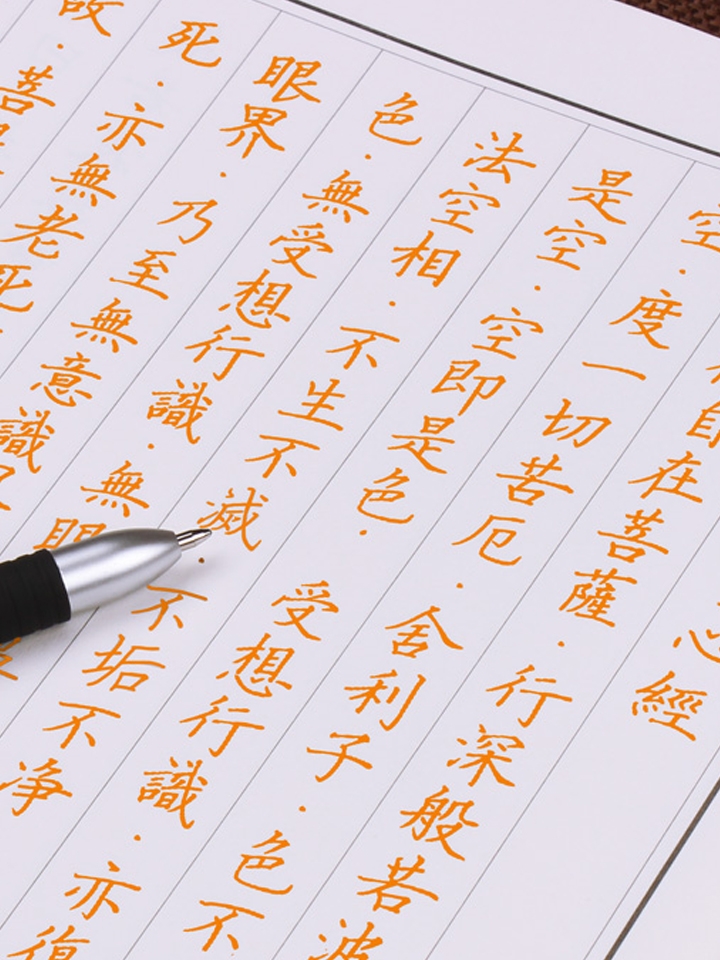 心經
在菩薩·行深般若波
空·度一切苦厄·舍利子·色不
是空·空即是色·受想行識·亦復
法空相·不生不滅·不垢不净
色·無受想行識·無眼
眼界·乃至無意識
死·亦無老死
故·菩